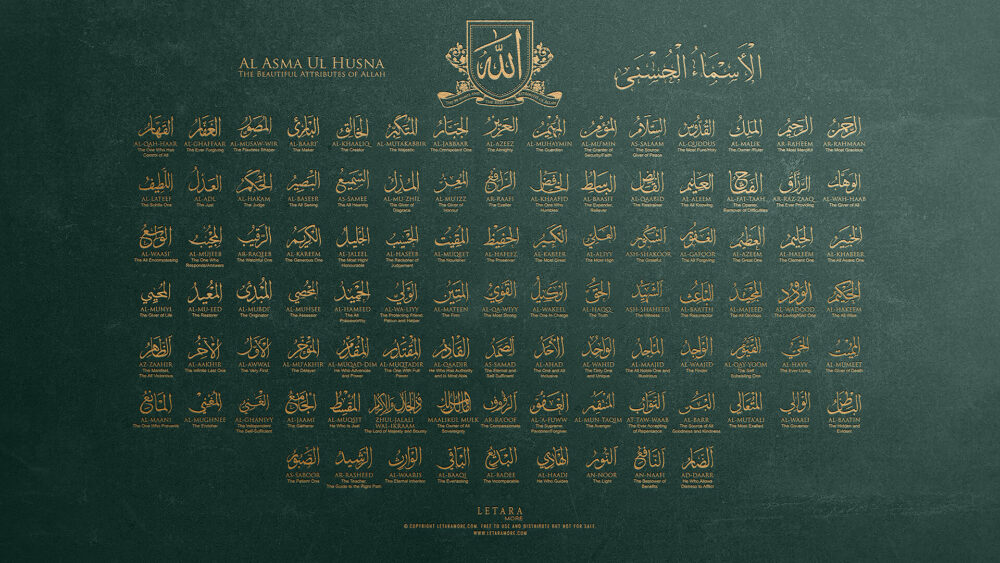 AL ASMA UL HUSNA
THE BEAUTIFUL ATTRIBUTES OF ALLAH
الله
الأسماء الحسنى
الرحمن
AR-RAHMAAN
The Most Gracious
الرحيم
AR-RAHEEM
The Most Merciful
الملك
AL-MALIK
The Owner /Ruler
القدوس
AL-QUDDUS
The Most Pure/Holy
السلام
AS-SALAAM
The Source/
Giver of Peace
المؤمن
AL-MU'MIN
The Granter of
Security/Faith
المهيمن
AL-MUHAYMIN
The Guardian
العزيز
AL-AZEEZ
The Almighty
الجبار
AL-JABBARR
The Omnipotent One
المتكبر
AL-MUTAKABBIR
The Majestic
الخالق
AL-KHAALIQ
The Creator
البارئ
AL-BAARI
The Maker
المصور
AL-MUSAW-WIR
The Flawless Shaper
الغفار
AL-GHAFFAAR
The Ever Forgiving
القهار
AL-QAH-HAAR
The One Who Has
Control of All
الوهاب
AL-WAH-HAAB
The Giver of All
الرزاق
AR-RAZ-ZAAQ
The Ever Providing
الفتاح
AL-FAT-TAAH
The Opener,
Remover of Difficulties
العليم
AL-ALEEM
The All Knowing
القابض
AL-QAABID
The Restrainer
الباسط
AL-BAASIT
The Expander,
Reliever
الخافض
AL-KHAAFID
The One Who
Humbles
الرافع
AR-RAAFI
The Exalter
المعز
AL-MU'IZZ
The Giver of
Honour
المذل
AL-MU'ZHIL
The Giver of
Disgrace
السميع
AS-SAMEE
The All Hearing
البصير
AL-BASEER
The All Seeing
الحكم
AL-HAKAM
The Judge
العدل
AL-ADL
The Just
اللطيف
AL-LATEEF
The Subtle One
الخبير
AL-KHABEER
The All Aware One
الحليم
AL-HALEEM
The Clement One
العظيم
AL-AZEEM
The Great
الغفور
AL-GAFOOR
The All Forgiving
الشكور
ASH-SHAKOOR
The Grateful
العلي
AL-ALIYY
The Most High
الكبير
AL-KABEER
The Most Great
الحفيظ
AL-HAFEEZ
The Preserver
المقيت
AL-MUQEET
The Nourisher
الحسيب
AL-HASEEB
The Reckoner of
Judgement
الجليل
AL-JALEEL
The Most High/
Honourable
الكريم
AL-KAREEM
The Generous One
الرقيب
AR-RAQEEB
The Watchful One
المجيب
AL-MUJEEB
The One Who
Responds/Answers
الواسع
AL-WAASI
The All Encompassing
الحكيم
AL-HAKEEM
The All Wise
الودود
AL-WADOOD
The Loving/Kind One
المجيد
AL-MAJEED
The All Glorious
الباعث
AL-BAA'ITH
The Resurrector
الشهيد
ASH-SHAHEED
The Witness
الحق
AL-HAQQ
The Truth
الوكيل
AL-WAKEEL
The One In Charge
القوي
AL-QA-WIYY
The Most Strong
المتين
AL-MATEEN
The Firm
الولي
AL-WA-LIYY
The Protecting Friend
Patron and Helper
الحميد
AL-HAMEED
The All
Praiseworthy
المحصي
AL-MUHSEE
The Assessor
المبدئ
AL-MUBDI'
The Originator
المعيد
AL-MU-EED
The Restorer
المحيي
AL-MUHYI
The Giver of Life
المميت
AL-MUMEET
The Giver of Death
الحي
AL-HAYY
The Ever Living
القيوم
AL-QAY-YOOM
The Self
Subsisting One
الواجد
AL-WAAJID
The Finder
الماجد
AL-MAAJID
The All Noble One and
Illustrious
الواحد
AL-WAHID
The Only One
and Unique
الأحد
AL-AHAD
The One and All
Inclusive
الصمد
AS-SAMAD
The Eternal and
Self Sufficient
القادر
AL-QAADIR
He Who Has Authority
and Is Most Able
المقتدر
AL-MUQTADIR
The One With Full
Power
المقدم
AL-MUQAD-DIM
He Who Advances
and Power
المؤخر
AL-MU'AKHIR
The Delayer
الأول
AL-AWWAL
The Very First
الآخر
AL-AAKHIR
The Infinite Last One
الظاهر
AZ-ZAAHIR
The Manifest,
The All Victorious
الباطن
AL-BAATIN
The Hidden and
Evident
الوالي
AL-WAALI
The Governor
المتعالي
AL-MUTA'ALI
The Most Exalted
البر
AL-BARR
The Source of All
Goodness and Kindness
التواب
AT-TAW-WAAB
The Ever Accepting
of Repentance
المنتقم
AL-MUN TAQIM
The Avenger
العفو
AL-A'FUWW
The Supreme
Pardoner/Forgiver
الرؤوف
AR-RA'OOF
The Compassionate
مالك الملك
MAALIKUL MULK
The Owner of All
Sovereignty
ذو الجلال والإكرام
ZHUL-JALAALI
WAL-IKRAAM
The Lord of Majesty and Bounty
المقسط
AL-MUQSIT
He Who is Just
الجامع
AL-JAAMI
The Gatherer
الغني
AL-GHANIYY
The Independent
The Self-Sufficient
المغني
AL-MUGHNEE
The Enricher
المانع
AL-MAANI
The One Who Prevents
الضار
AD-DAARR
He Who Allows
Distress to Afflict
النافع
AN-NAAFI
The Bestower of
Benefits
النور
AN-NOOR
The Light
الهادي
AL-HAADI
He Who Guides
البديع
AL-BADEE
The Incomparable
الباقي
AL-BAAQI
The Everlasting
الوارث
AL-WAARIS
The Eternal Inheritor
الرشيد
AR-RASHEED
The Teacher,
The Guide to the Right Path
الصبور
AS-SABOOR
The Patient One
LETARA
MORE
© COPYRIGHT LETARAMORE.COM. FREE TO USE AND DISTRIBUTE BUT NOT FOR SALE.
WWW.LETARAMORE.COM